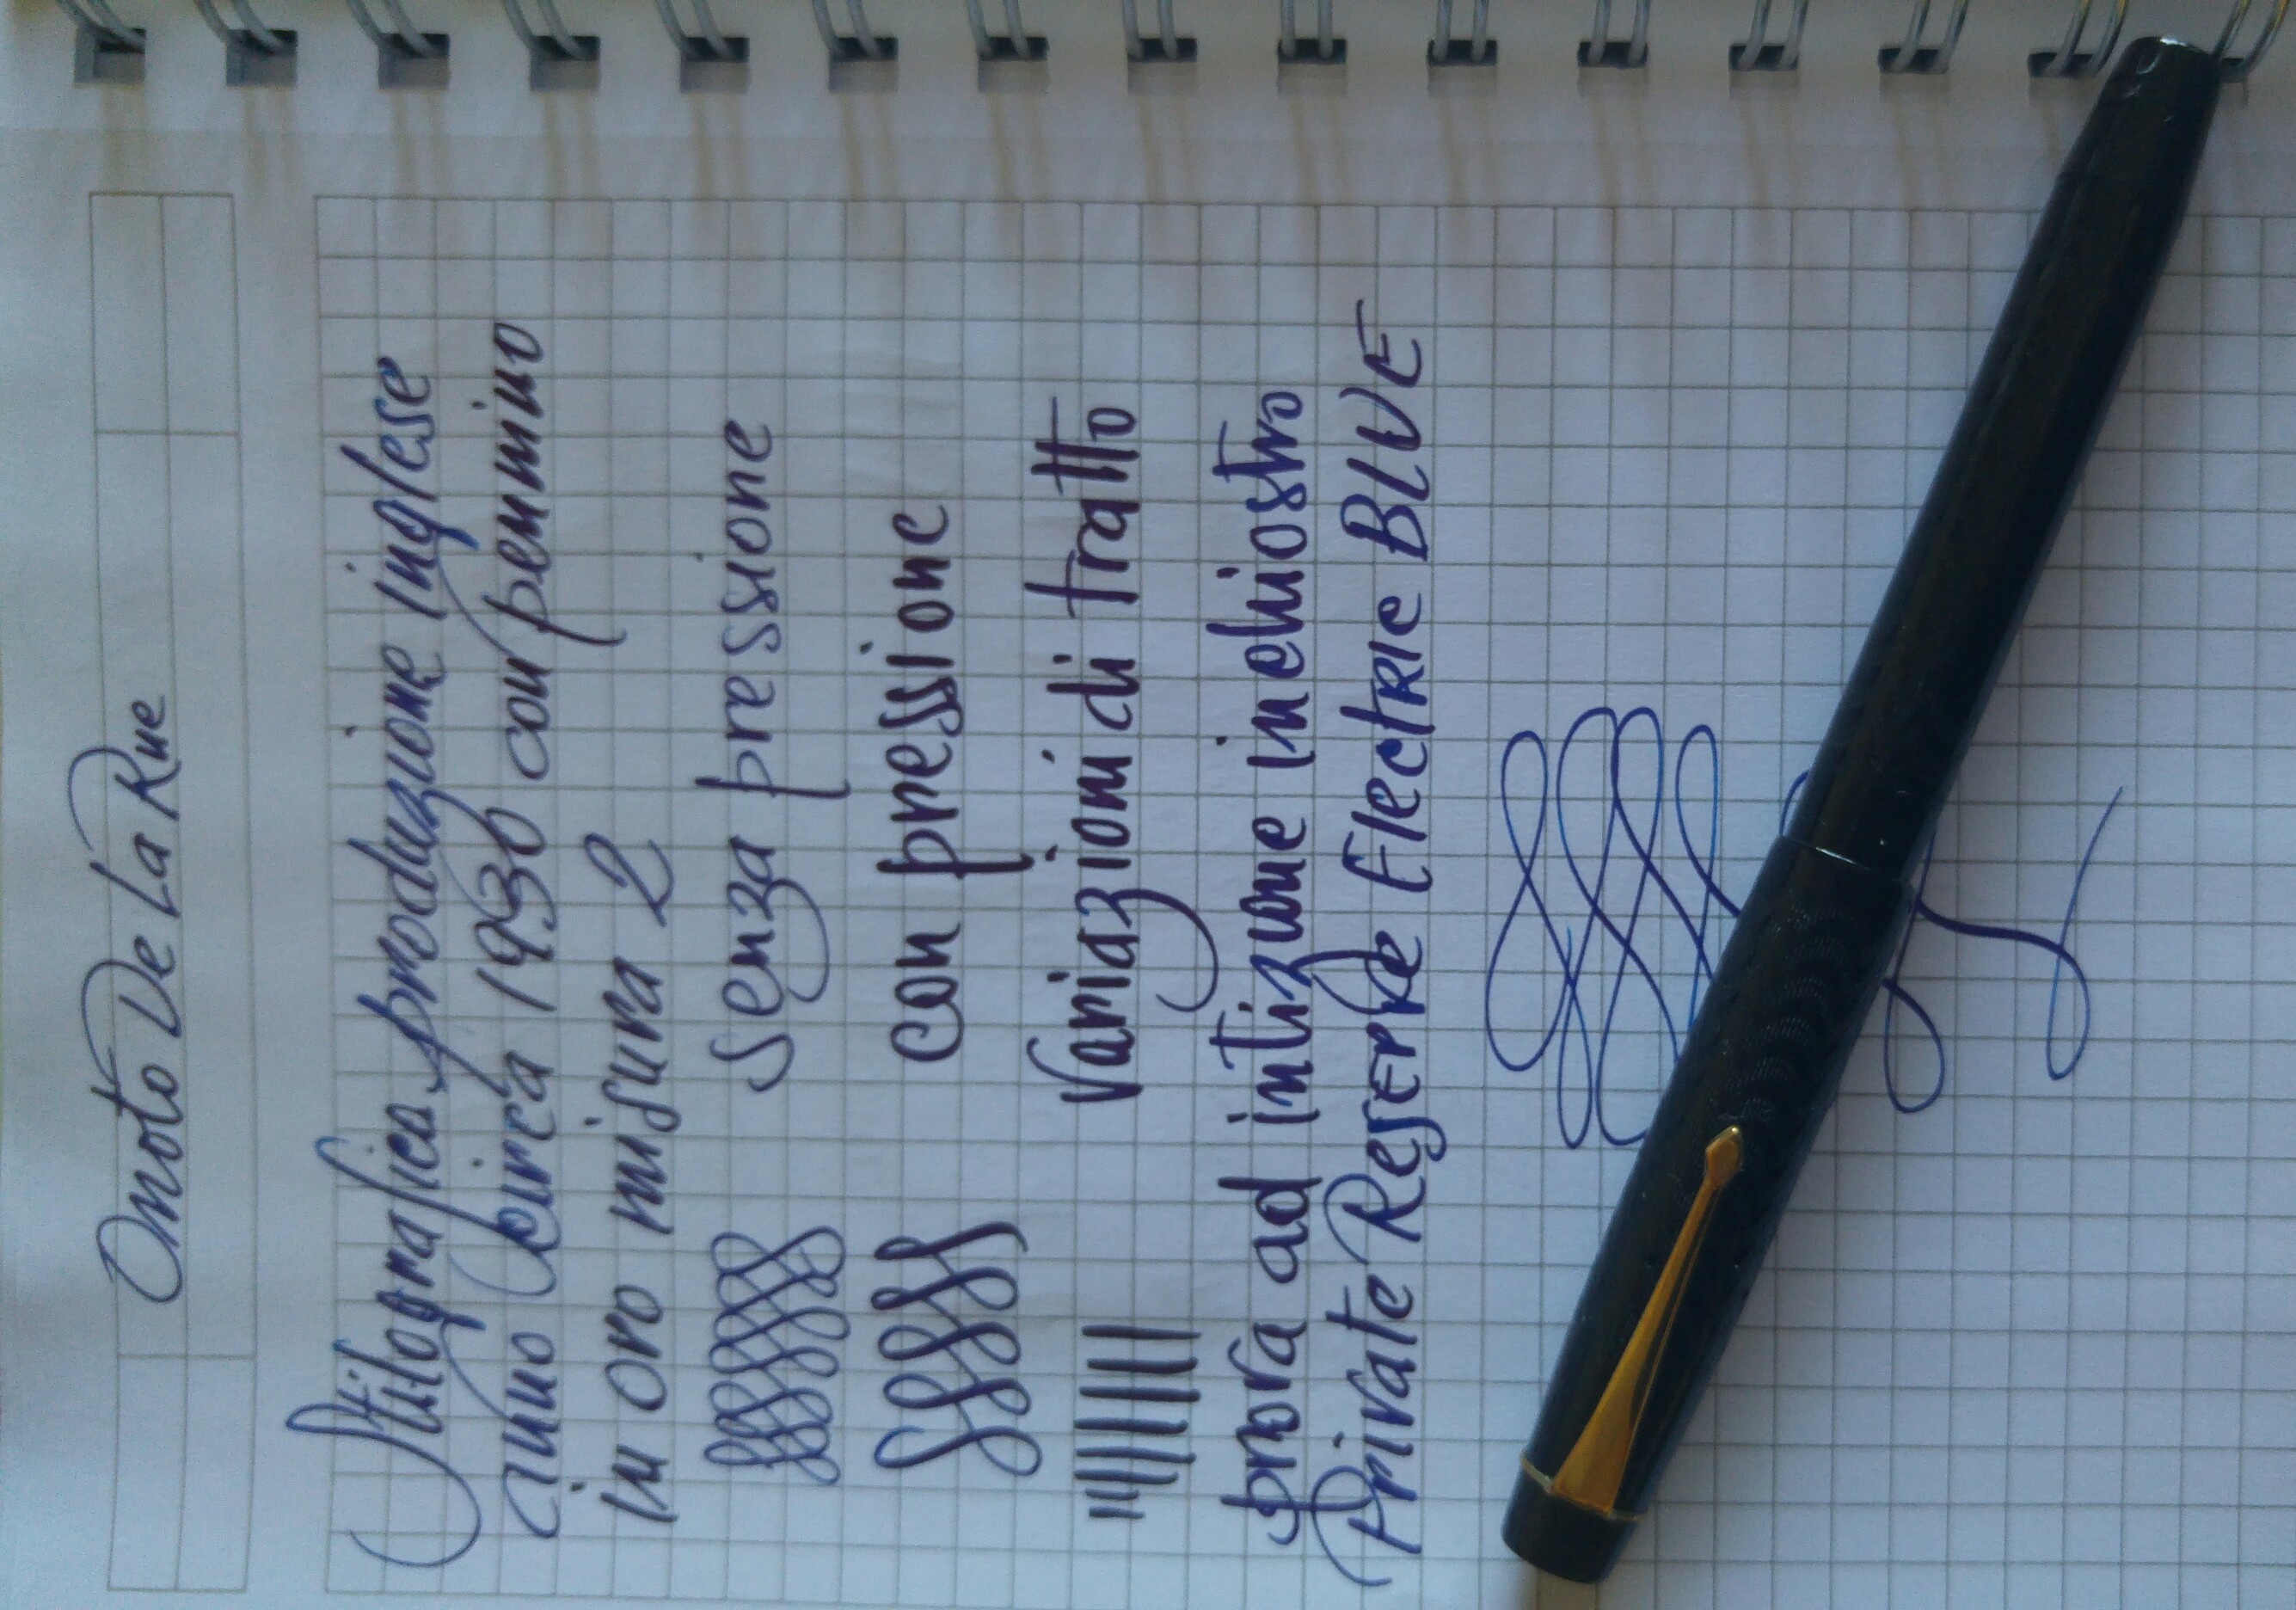 Onoto De La Rue
Stilografica produzione inglese
anno circa 1930 con pennino
in oro misura 2
senza pressione
con pressione
Variazioni di tratto
prova ad intizione inchiostro
Private Reserve Electric BLUE